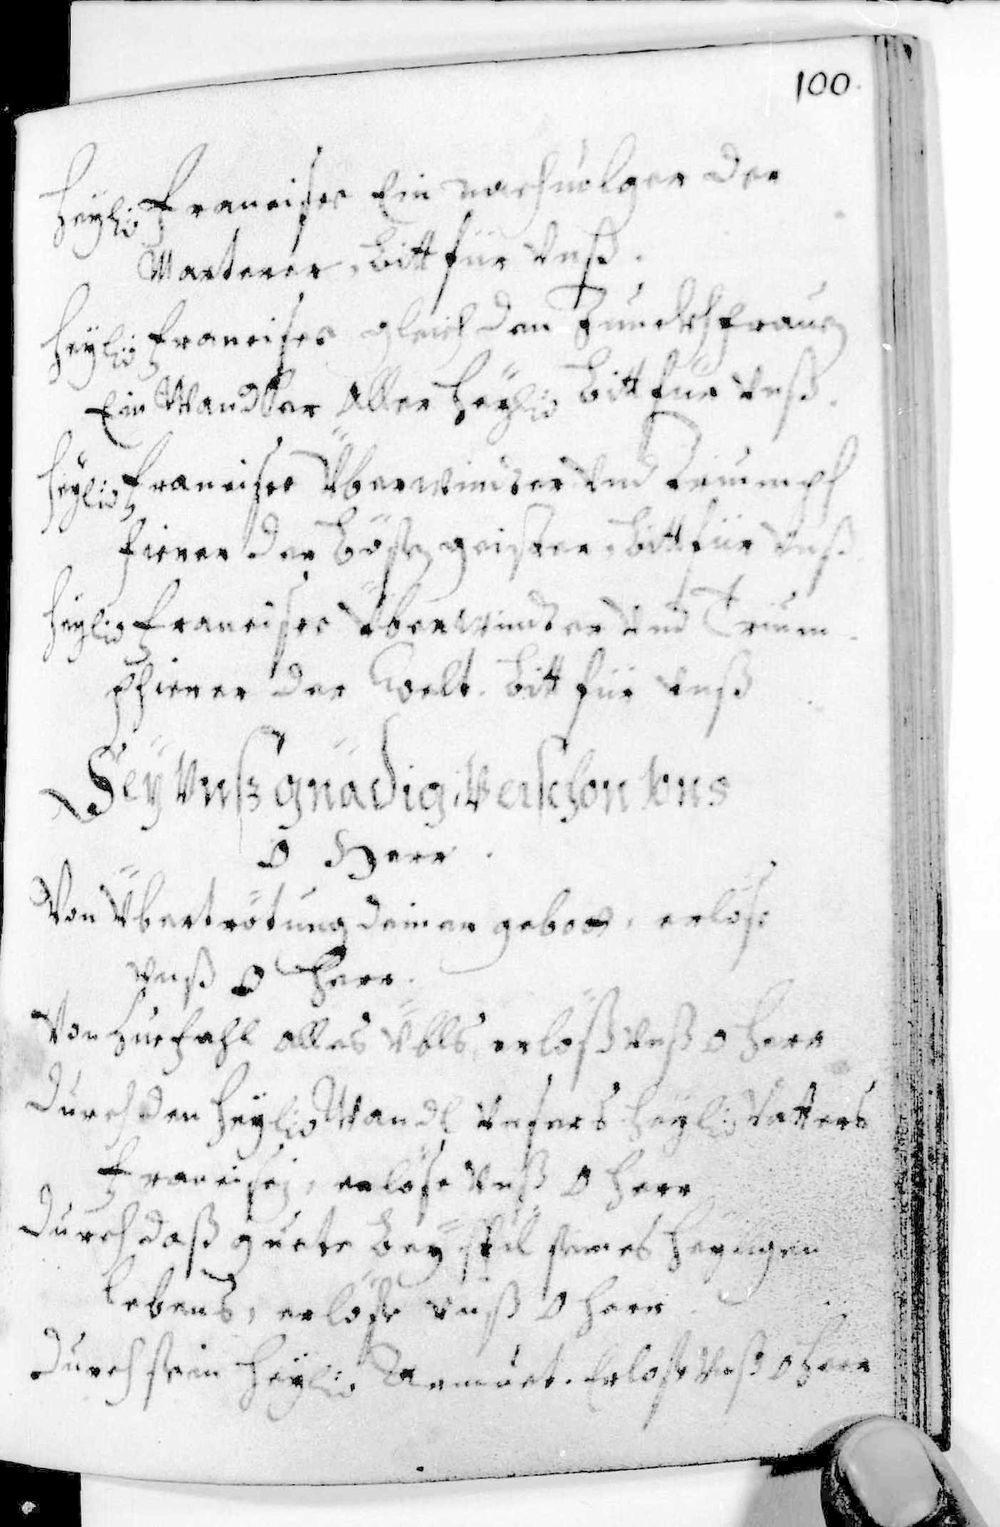 100.
Heÿlig Francisce Ein nachuolger der
Marterer, bitt für vnß.
Heÿlig Francisce gleich den Junckhfrauen
Ein Wandler Aller Heÿlig bitt für vnß.
Heÿlig Francisce Vberwinder vnd Triumph
fierer der bösen geister, bitt für vnß
Heÿlig Francisce Überwinder vnd Trium-
phierer der Welt. bitt für vnß
Seÿ vnß gnädig, Verschon vns
O Herr.
Von Vbertröttung deiner gebott, erlöse
vnß O Herr.
Von Zuefahl alles Vbls, erlöß vnß O Herr
Durch den Heÿlig Wandl vnsers Heÿlig Vatters
Francisci, erlöse vnß O Herr
Durch daß guete beÿspil seines Heyligen
Lebens, erlöse vnß O Herr
Durch sein Heÿlig Armuet. Erlöse vnß O Herr